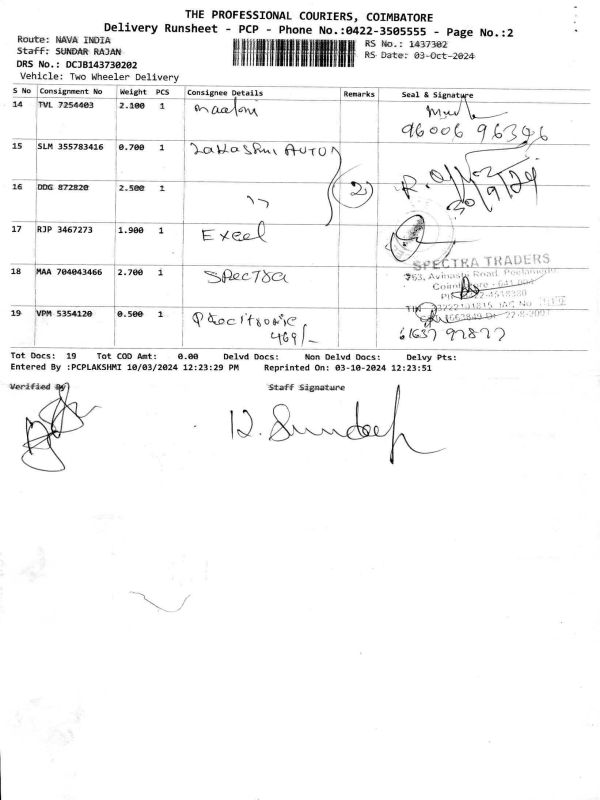 THE PROFESSIONAL COURIERS, COIMBATORE
Delivery Runsheet - PCP - Phone No.:0422-3505555 - Page No.:2
Route: NAVA INDIA
Staff: SUNDAR RAJAN
DRS No.: DCJB143730202
Vehicle: Two Wheeler Delivery
RS No.: 1437302
RS Date: 03-Oct-2024
S No Consignment No Weight PCS Consignee Details Remarks Seal & Signature
14 TVL 7254403 2.100 1
96006 96346
15 SLM 355783416 0.700 1 Lakashmi AUTO
16 DDG 872820 2.500 1 ,, 2)
30/9/24
17 RJP 3467273 1.900 1 Excel
18 MAA 704043466 2.700 1 Spectra
SPECTRA TRADERS
Avinashi Road, Peelamedu
Coimbatore - 641 004
19 VPM 5354120 0.500 1
469/-
Tot Docs: 19 Tot COD Amt: 0.00 Delvd Docs: Non Delvd Docs: Delvy Pts:
Entered By :PCPLAKSHMI 10/03/2024 12:23:29 PM Reprinted On: 03-10-2024 12:23:51
Verified By Staff Signature
K. Sundar